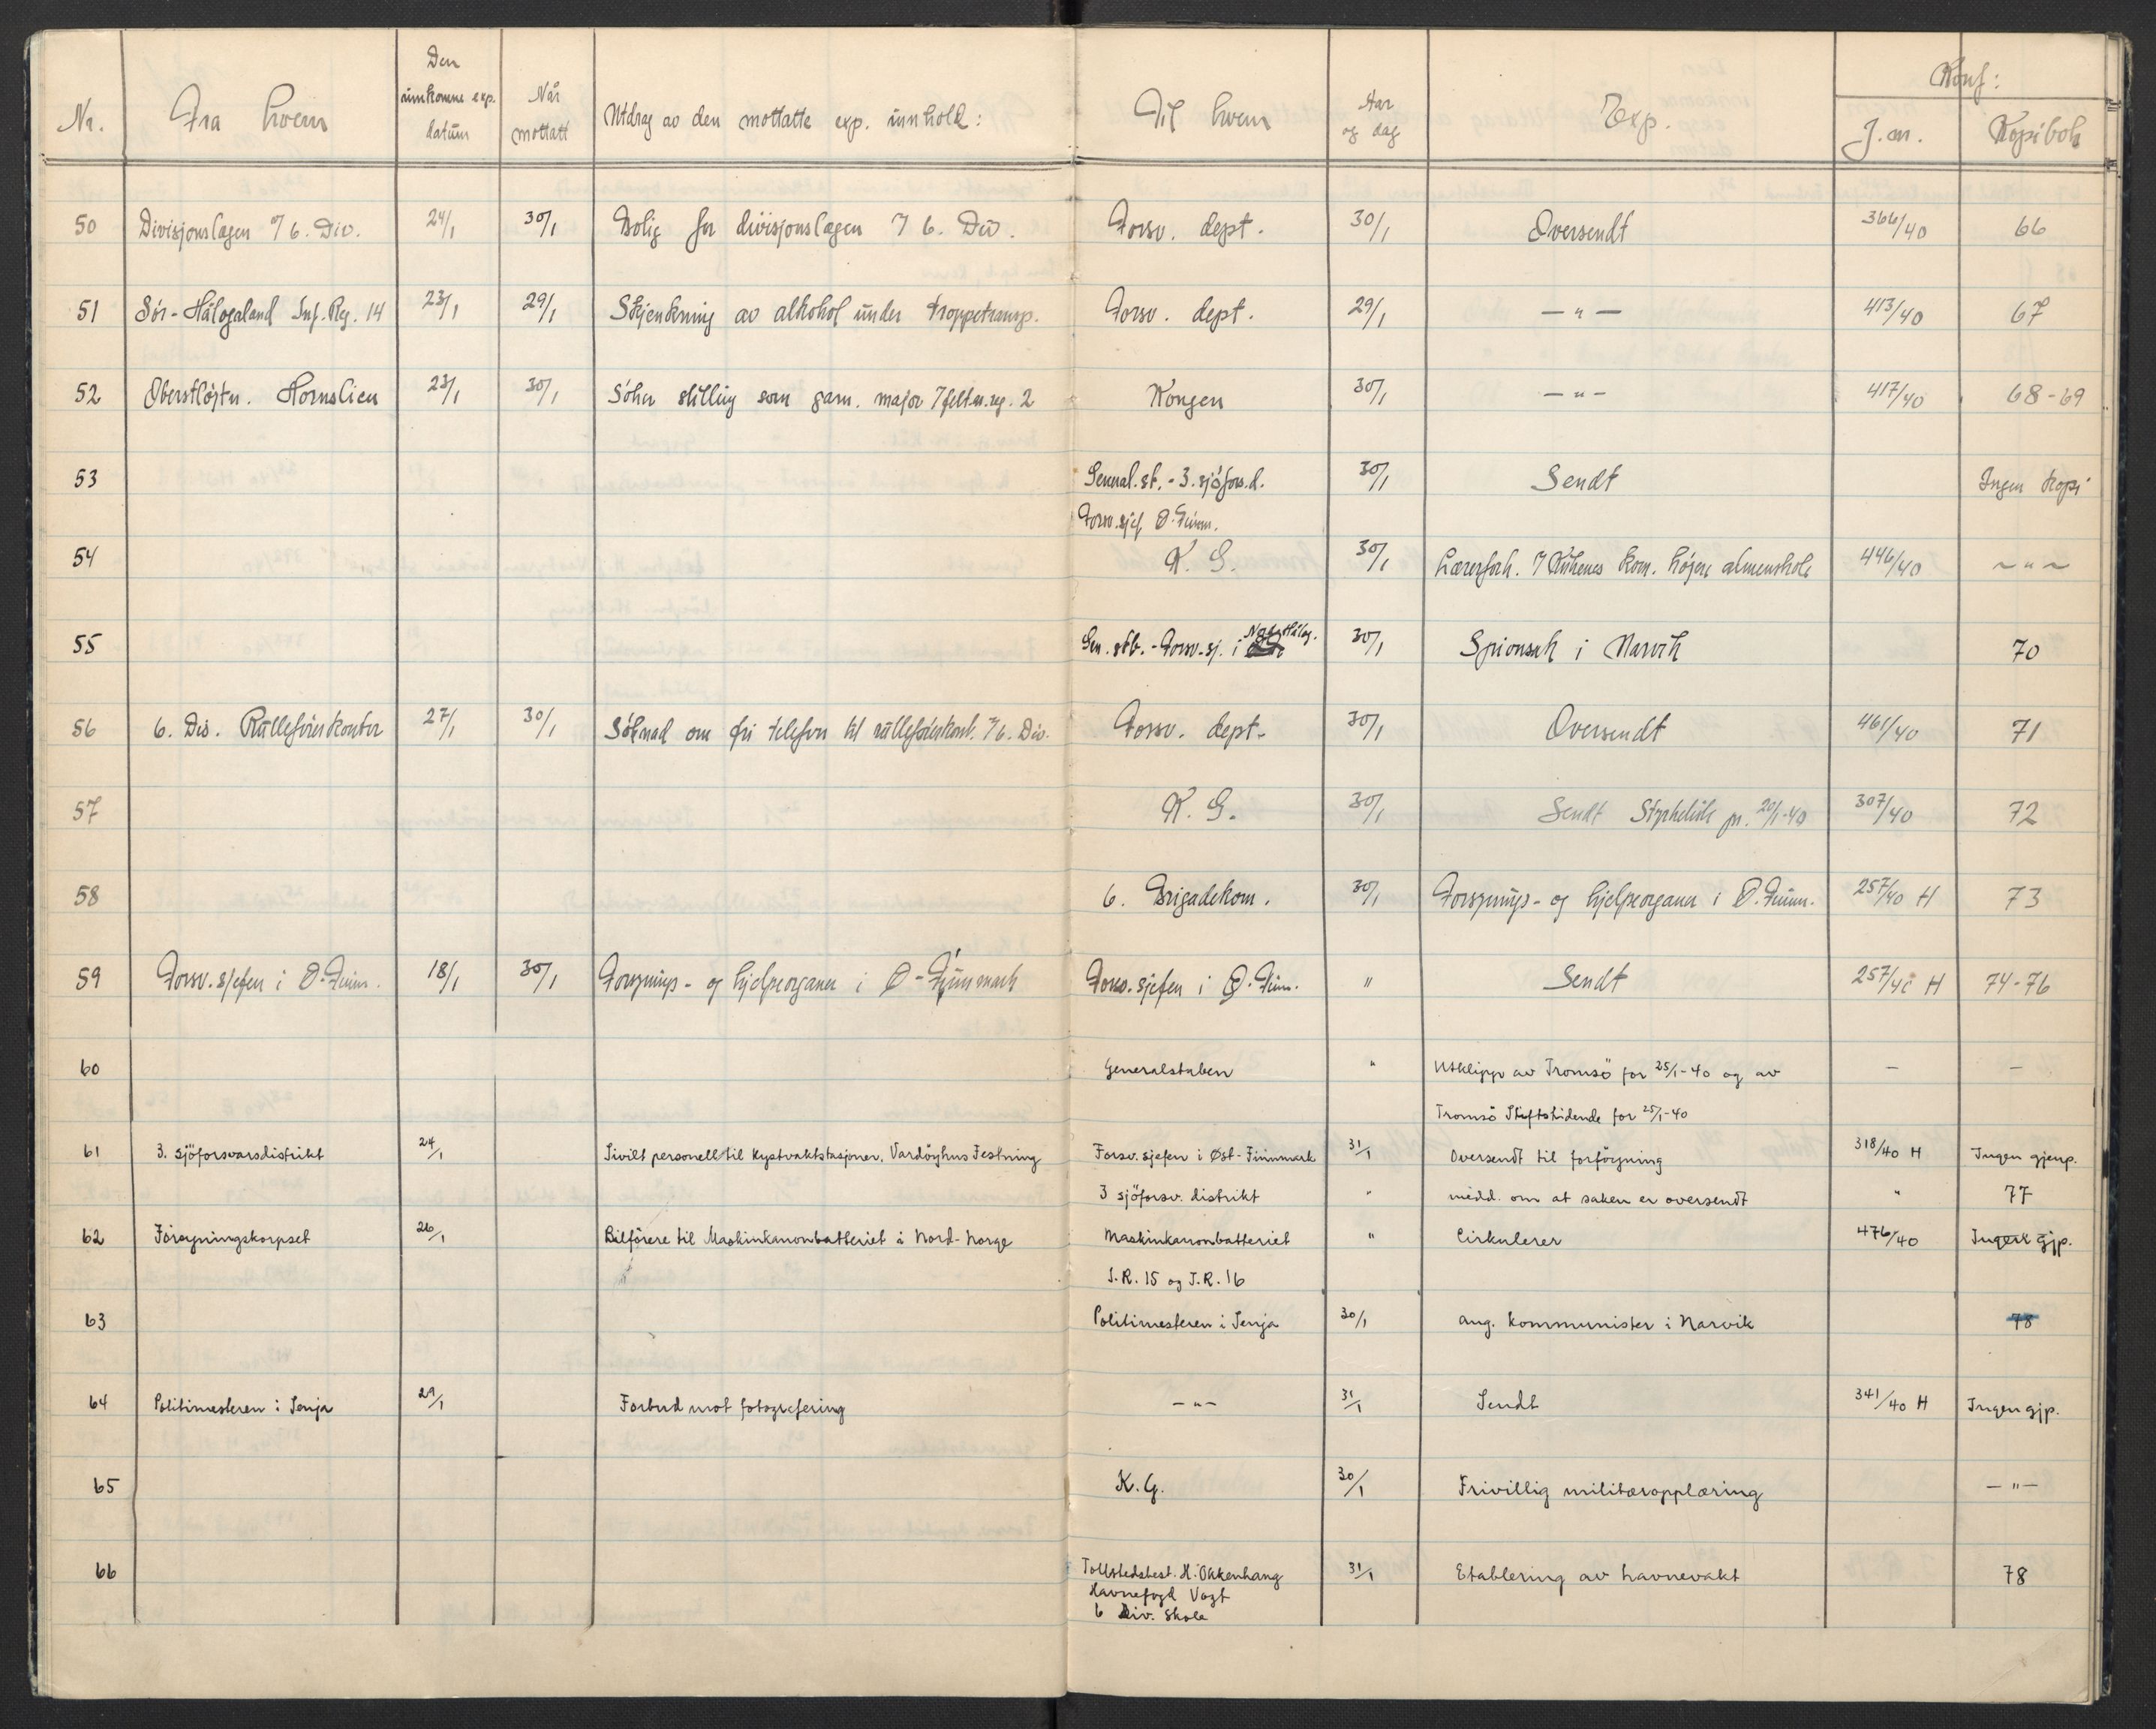 Nr. Fra hvem Den innkomne exp. datum Når mottatt Utdrag av den mottatte exp. innhold: Til hvem Aar og dag Exp. Konf: J.nr. Kopibok
50 Divisjonslægen v/ 6. Div. 24/1 30/1 Bolig for divisjonslægen v/ 6. Div. Forsv. dept. 30/1 Oversendt 366/40 66
51 Sör-Hålogaland Inf. Reg. 14 23/1 29/1 Skjenkning av alkohol under troppetransp. Forsv. dept. 29/1 — " — 413/40 67
52 Oberstløjtn. Hornslien 23/1 30/1 Söker stilling som garn. major v/ felt.art.reg. 2 Kongen 30/1 — " — 417/40 68-69
53 General.st. - 3. sjöforsv.d. 30/1 Sendt Ingen kopi
Forsv.sjef Ø. Finnm.
54 K. G. 30/1 Lærerforh. v/ Kirkenes kom. höjere almenskole 446/40 ~ " ~
55 Gen. stb. - Forsv.sj. i Nord-Hålog. 30/1 Spionsak i Narvik 70
56 6. Div. Rulleförerkontor 27/1 30/1 Söknad om fri telefon til rulleförerkont. v/ 6. Div. Forsv. dept. 30/1 Oversendt 461/40 71
57 K. G. 30/1 Sendt Styrkeliste pr. 20/1-40 307/40 72
58 6. Brigadekom. 30/1 Forsynings- og hjelpeorganer i Ø. Finnm. 257/40 H 73
59 Forsv.sjefen i Ø-Finnm. 18/1 30/1 Forsynings- og hjelpeorganer i Ø-Finnmark Forsv.sjefen i Ø. Finm. " Sendt 257/40 H 74-76
60 Generalstaben " Utklipp av Tromsö for 25/1-40 og av — —
Tromsö Stiftstidende for 25/1-40
61 3. sjöforsvarsdistrikt 24/1 Sivilt personell til kystvaktstasjoner, Vardöyhus Festning Forsv.sjefen i Øst-Finnmark 31/1 Oversendt til forföyning 318/40 H Ingen gjenp.
3 sjöforsv. distrikt " medd. om at saken er oversendt " 77
62 Forsyningskorpset 26/1 Bilförere til Maskinkanonbatteriet i Nord-Norge Maskinkanonbatteriet " Cirkulerer 476/40 Ingen gjp.
I.R. 15 og I.R. 16
63 Politimesteren i Senja 30/1 ang. kommunister i Narvik 78
64 Politimesteren i Senja 29/1 Forbud mot fotografering — " — 31/1 Sendt 341/40 H Ingen gjp.
65 K. G. 30/1 Frivillig militæropplæring — " —
66 Tollstedsbest. H. Okkenhaug 31/1 Etablering av havnevakt 78
Havnefogd Vogt
6 Div. skole